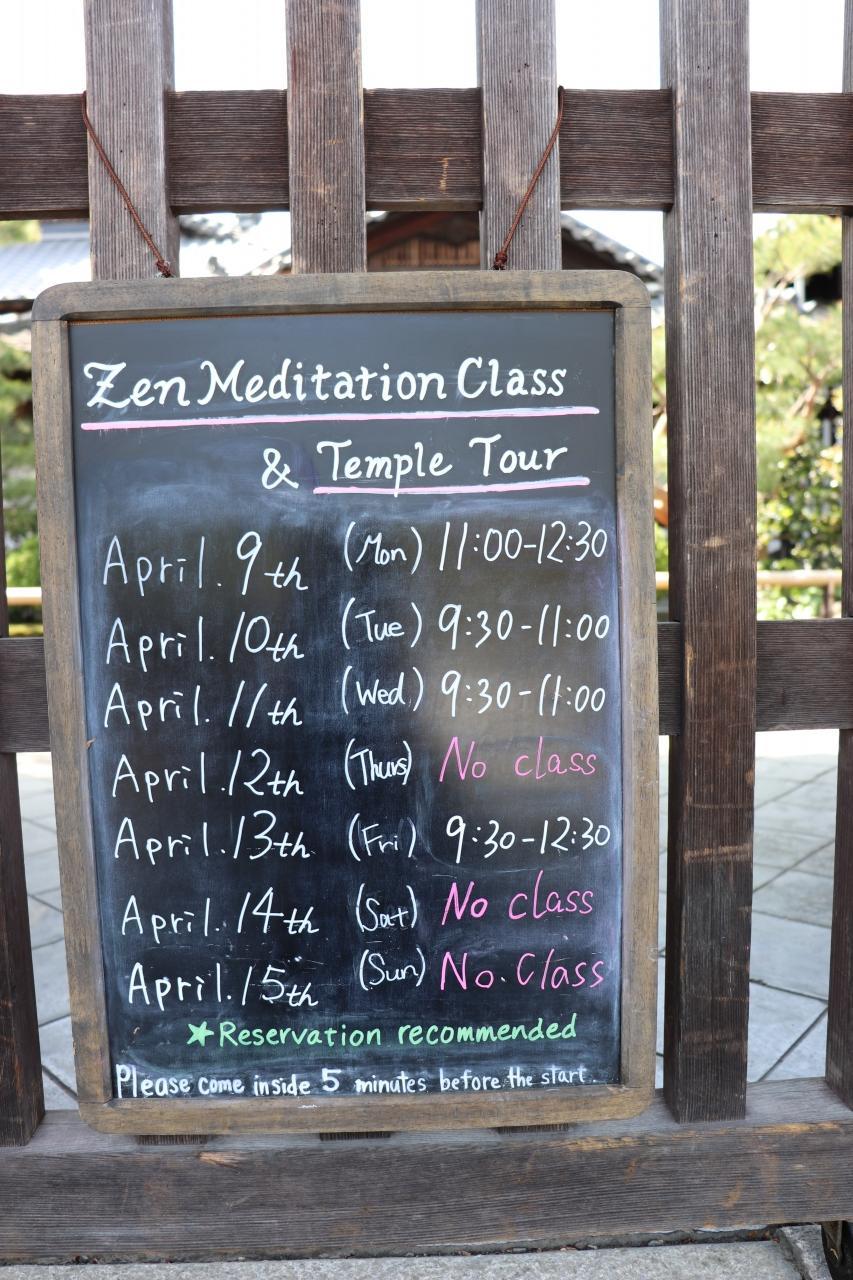 Zen Meditation Class
& Temple Tour
April. 9th (Mon) 11:00-12:30
April. 10th (Tue) 9:30-11:00
April. 11th (Wed) 9:30-11:00
April. 12th (Thurs) No class
April. 13th (Fri) 9:30-12:30
April. 14th (Sat) No class
April. 15th (Sun) No. Class
★Reservation recommended
Please come inside 5 minutes before the start.